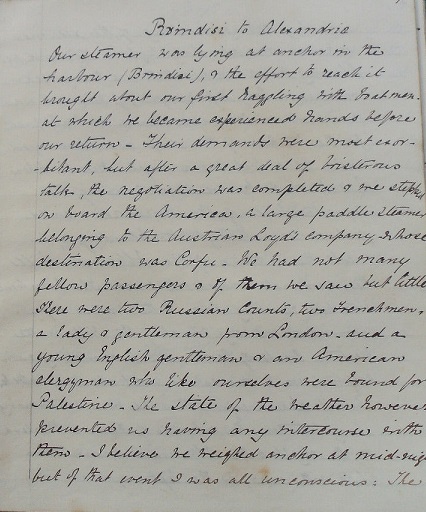 Brindisi to Alexandria
Our steamer was lying at anchor in the
harbour (Brindisi), & the effort to reach it
brought about our first haggling with boatmen.
at which we became experienced hands before
our return - Their demands were most exor-
-bitant, but after a great deal of boisterous
talk, the negotiation was completed & we stepped
on board the America, a large paddle steamer
belonging to the Austrian Loyd's Company - whose
destination was Corfu - We had not many
fellow passengers & of them we saw but little
There were two Russian Counts, two Frenchmen,
a lady & gentleman from London - and a
young English gentleman & an American
clergyman who like ourselves were bound for
Palestine - The state of the weather however
prevented us having any intercourse with
them - I believe we weighed anchor at mid-nig
but of that event I was all unconscious: The